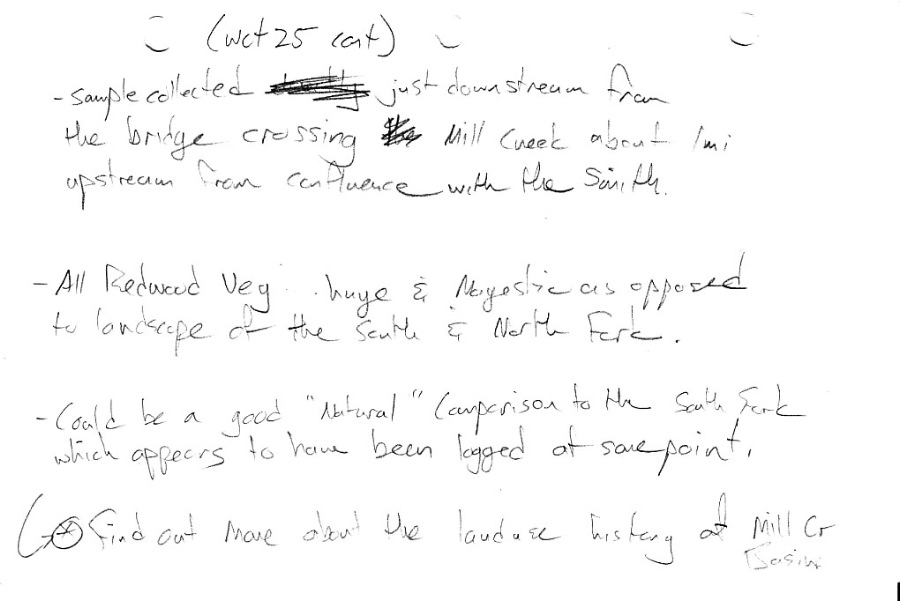 (wct25 cont)
- sample collected just downstream from
the bridge crossing Mill Creek about 1mi
upstream from confluence with the Smith.
- All Redwood Veg. huge & Majestic as opposed
to landscape of the South & North Fork.
- Could be a good "Natural" Comparison to the South Fork
which appears to have been logged at some point.
Find out more about the landuse history of Mill Cr
Basin